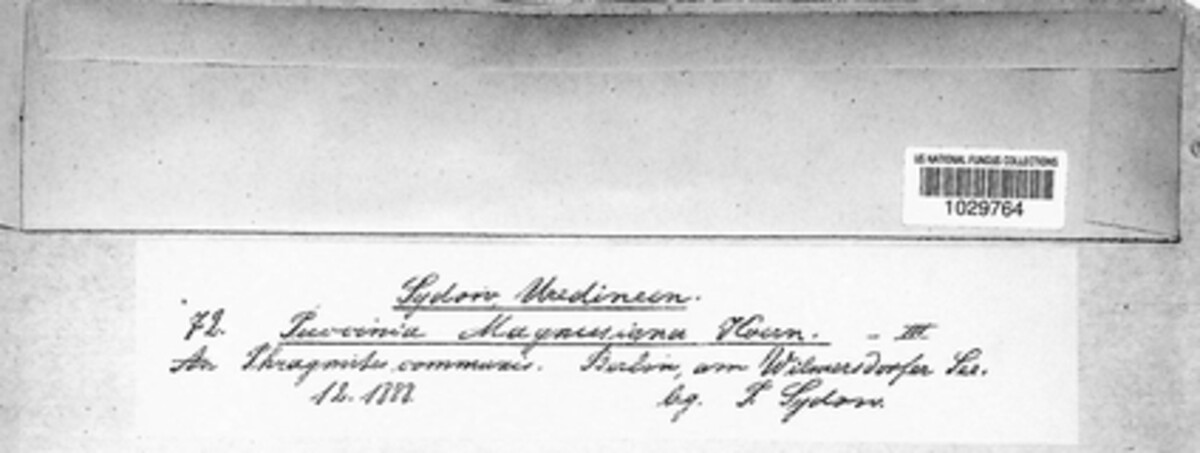 US NATIONAL FUNGUS COLLECTIONS
1029764
Sydow, Uredineen.
72. Puccinia Magnusiana Koern. - III.
An Phragmites communis. Berlin, am Wilmersdorfer See.
12. 1888 leg. P. Sydow.